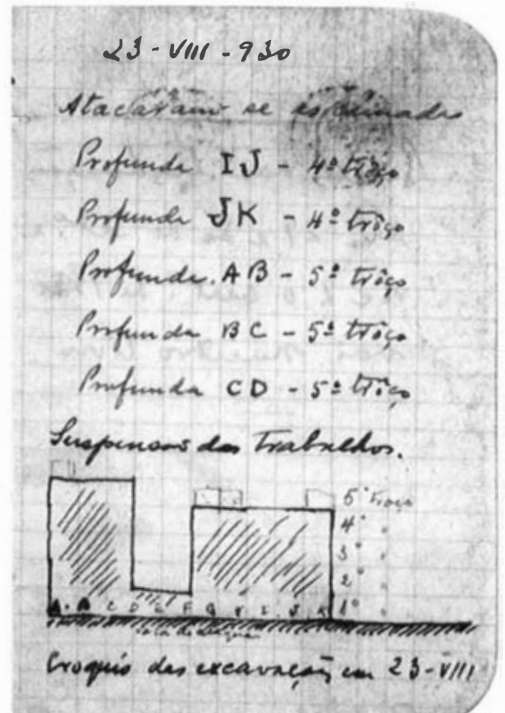 23-VIII-930
Atacaram se as camadas
Profunda IJ - 4º trôço
Profunda JK - 4º trôço
Profunda. AB - 5º trôço
Profunda BC - 5º trôço
Profunda CD - 5º trôço
Suspensos dos trabalhos.
5º troço
4º "
3º "
2º "
1º "
A B C D E F G H I J K
Croquis das excavações em 23-VIII